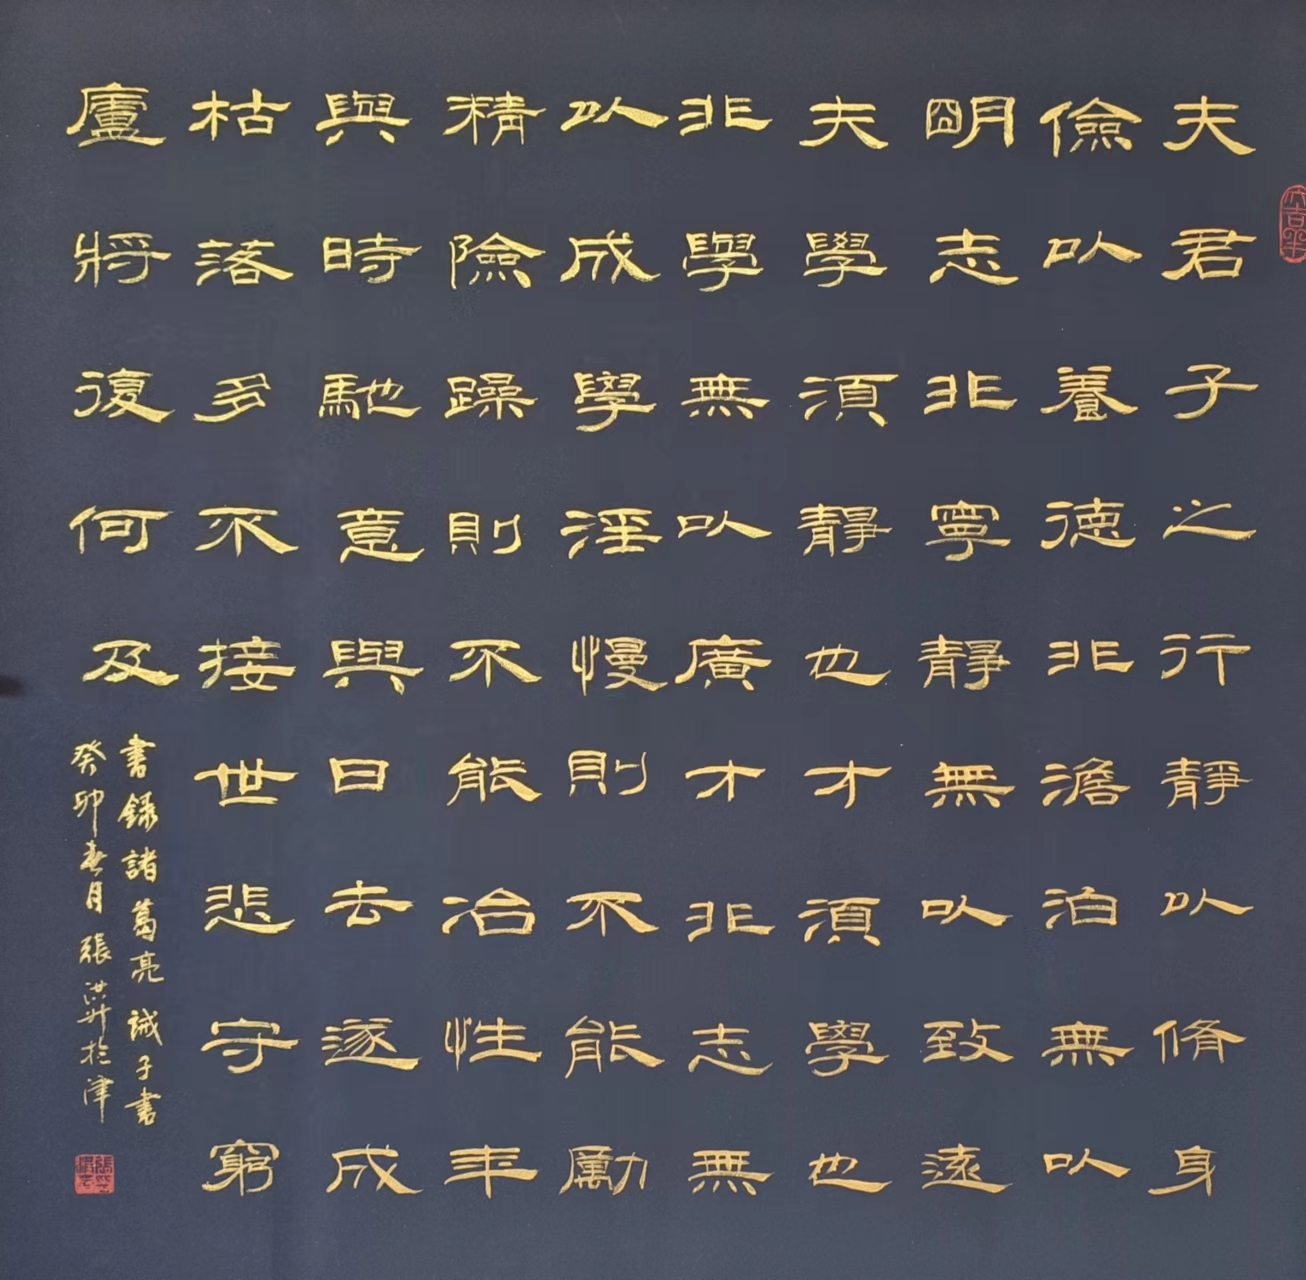 夫君子之行靜以脩身
儉以養德非澹泊無以
明志非寧靜無以致遠
夫學須靜也才須學也
非學無以廣才非志無
以成學淫慢則不能勵
精險躁則不能冶性年
與時馳意與日去遂成
枯落多不接世悲守窮
廬將復何及
書錄諸葛亮誡子書
癸卯春月張洪昇於津